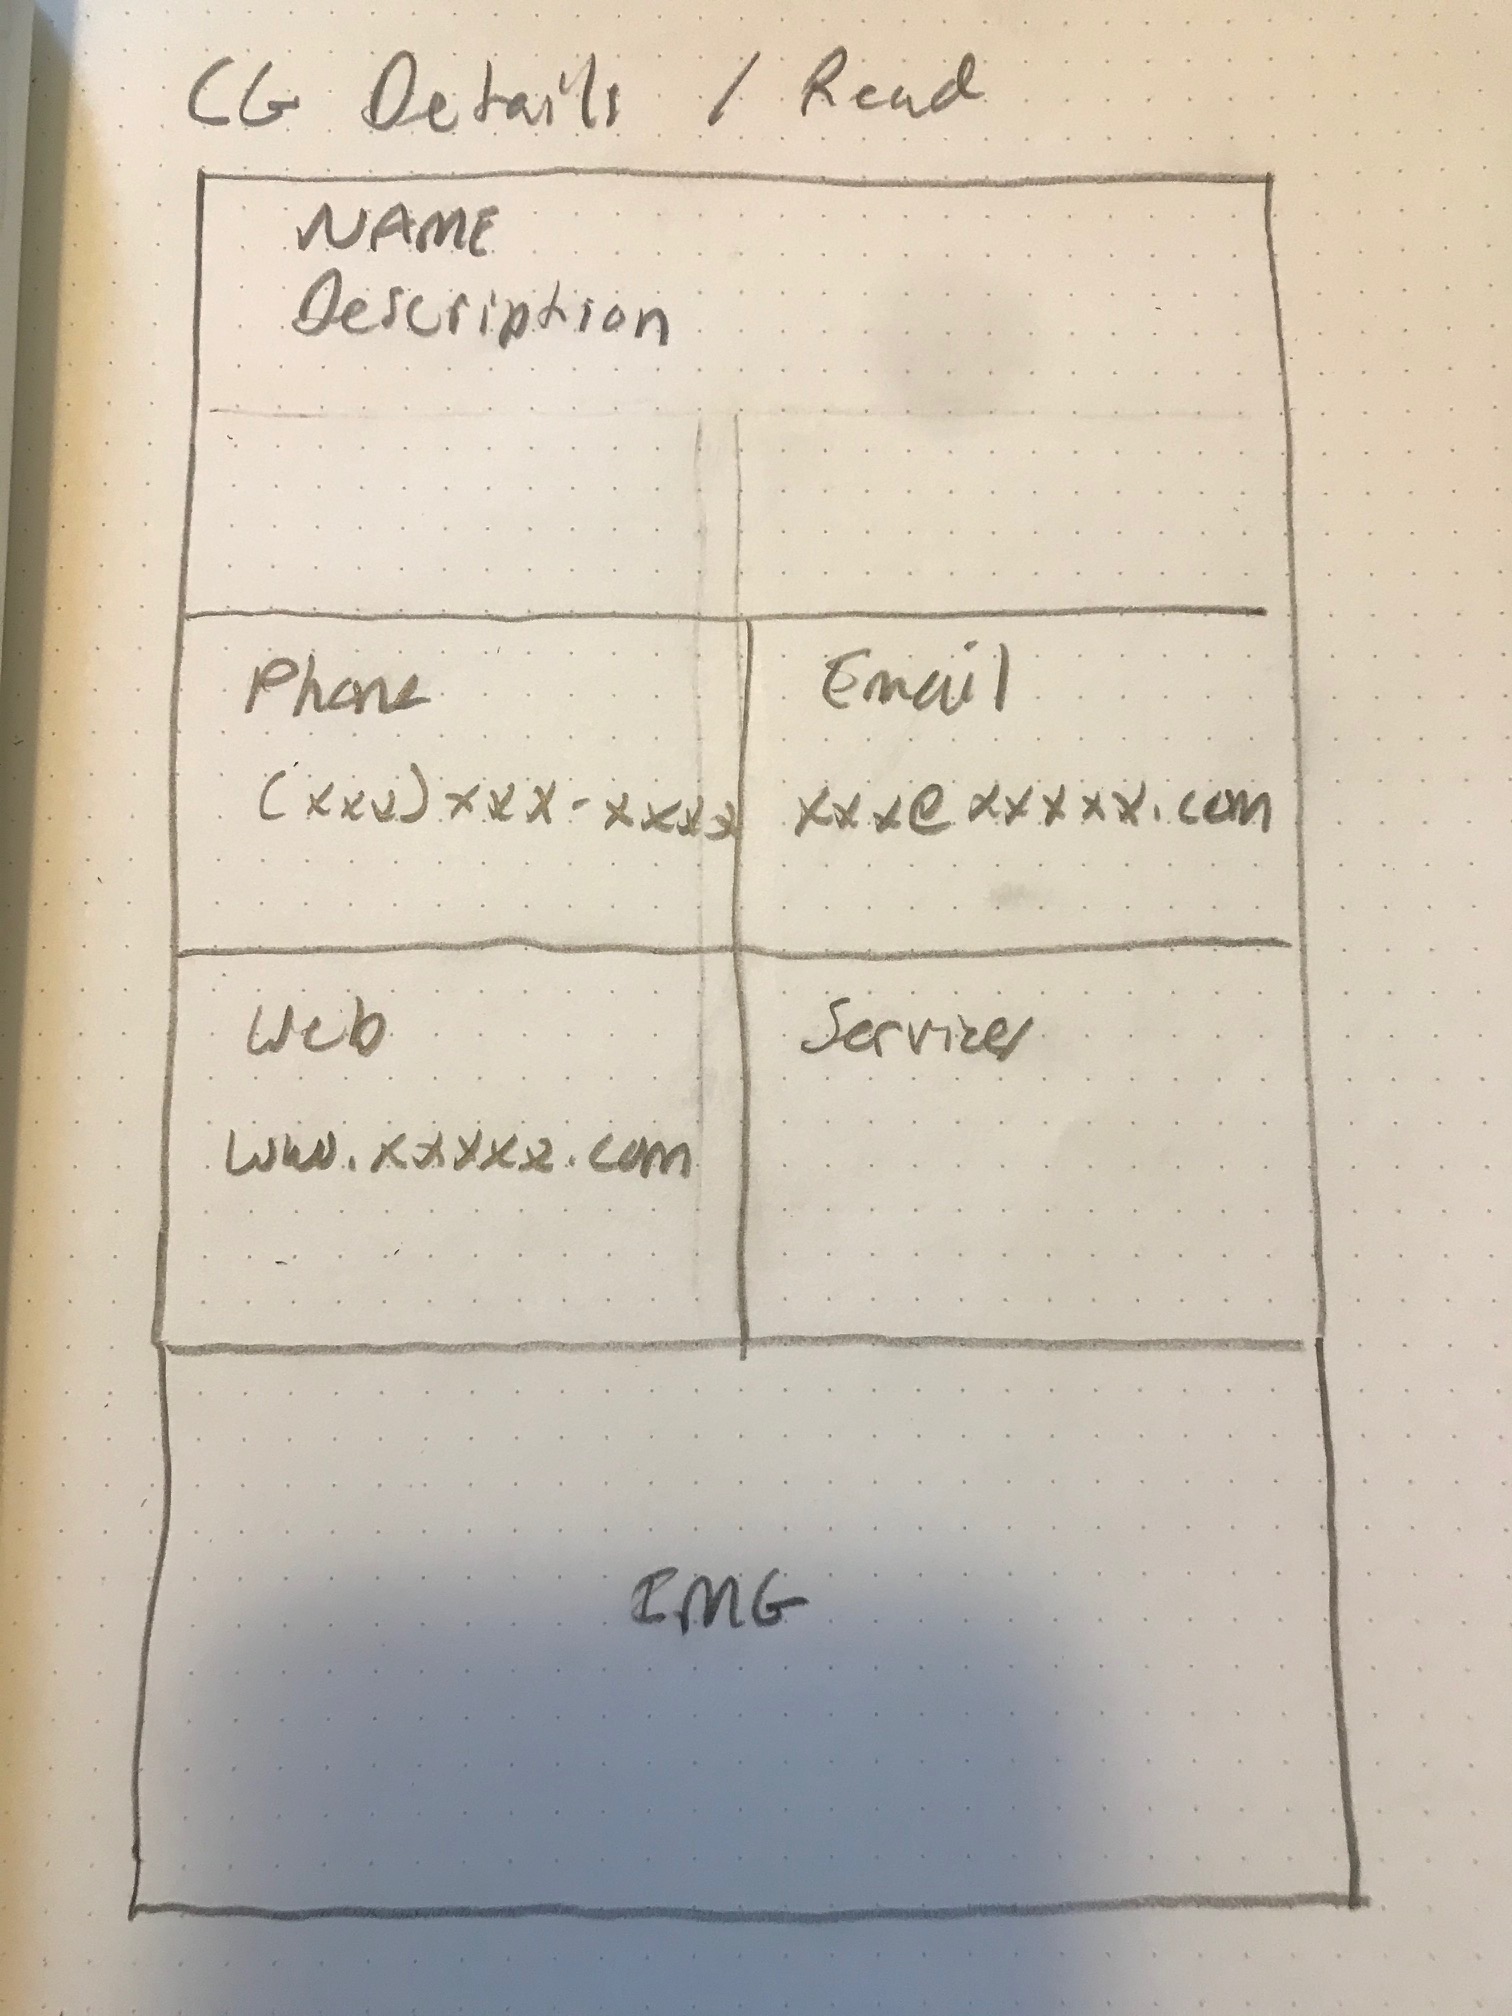 CG Details / Read
NAME
Description
Phone
(xxx) xxx-xxxx
Email
xxx@xxxxx.com
Web
www.xxxxx.com
Services
IMG